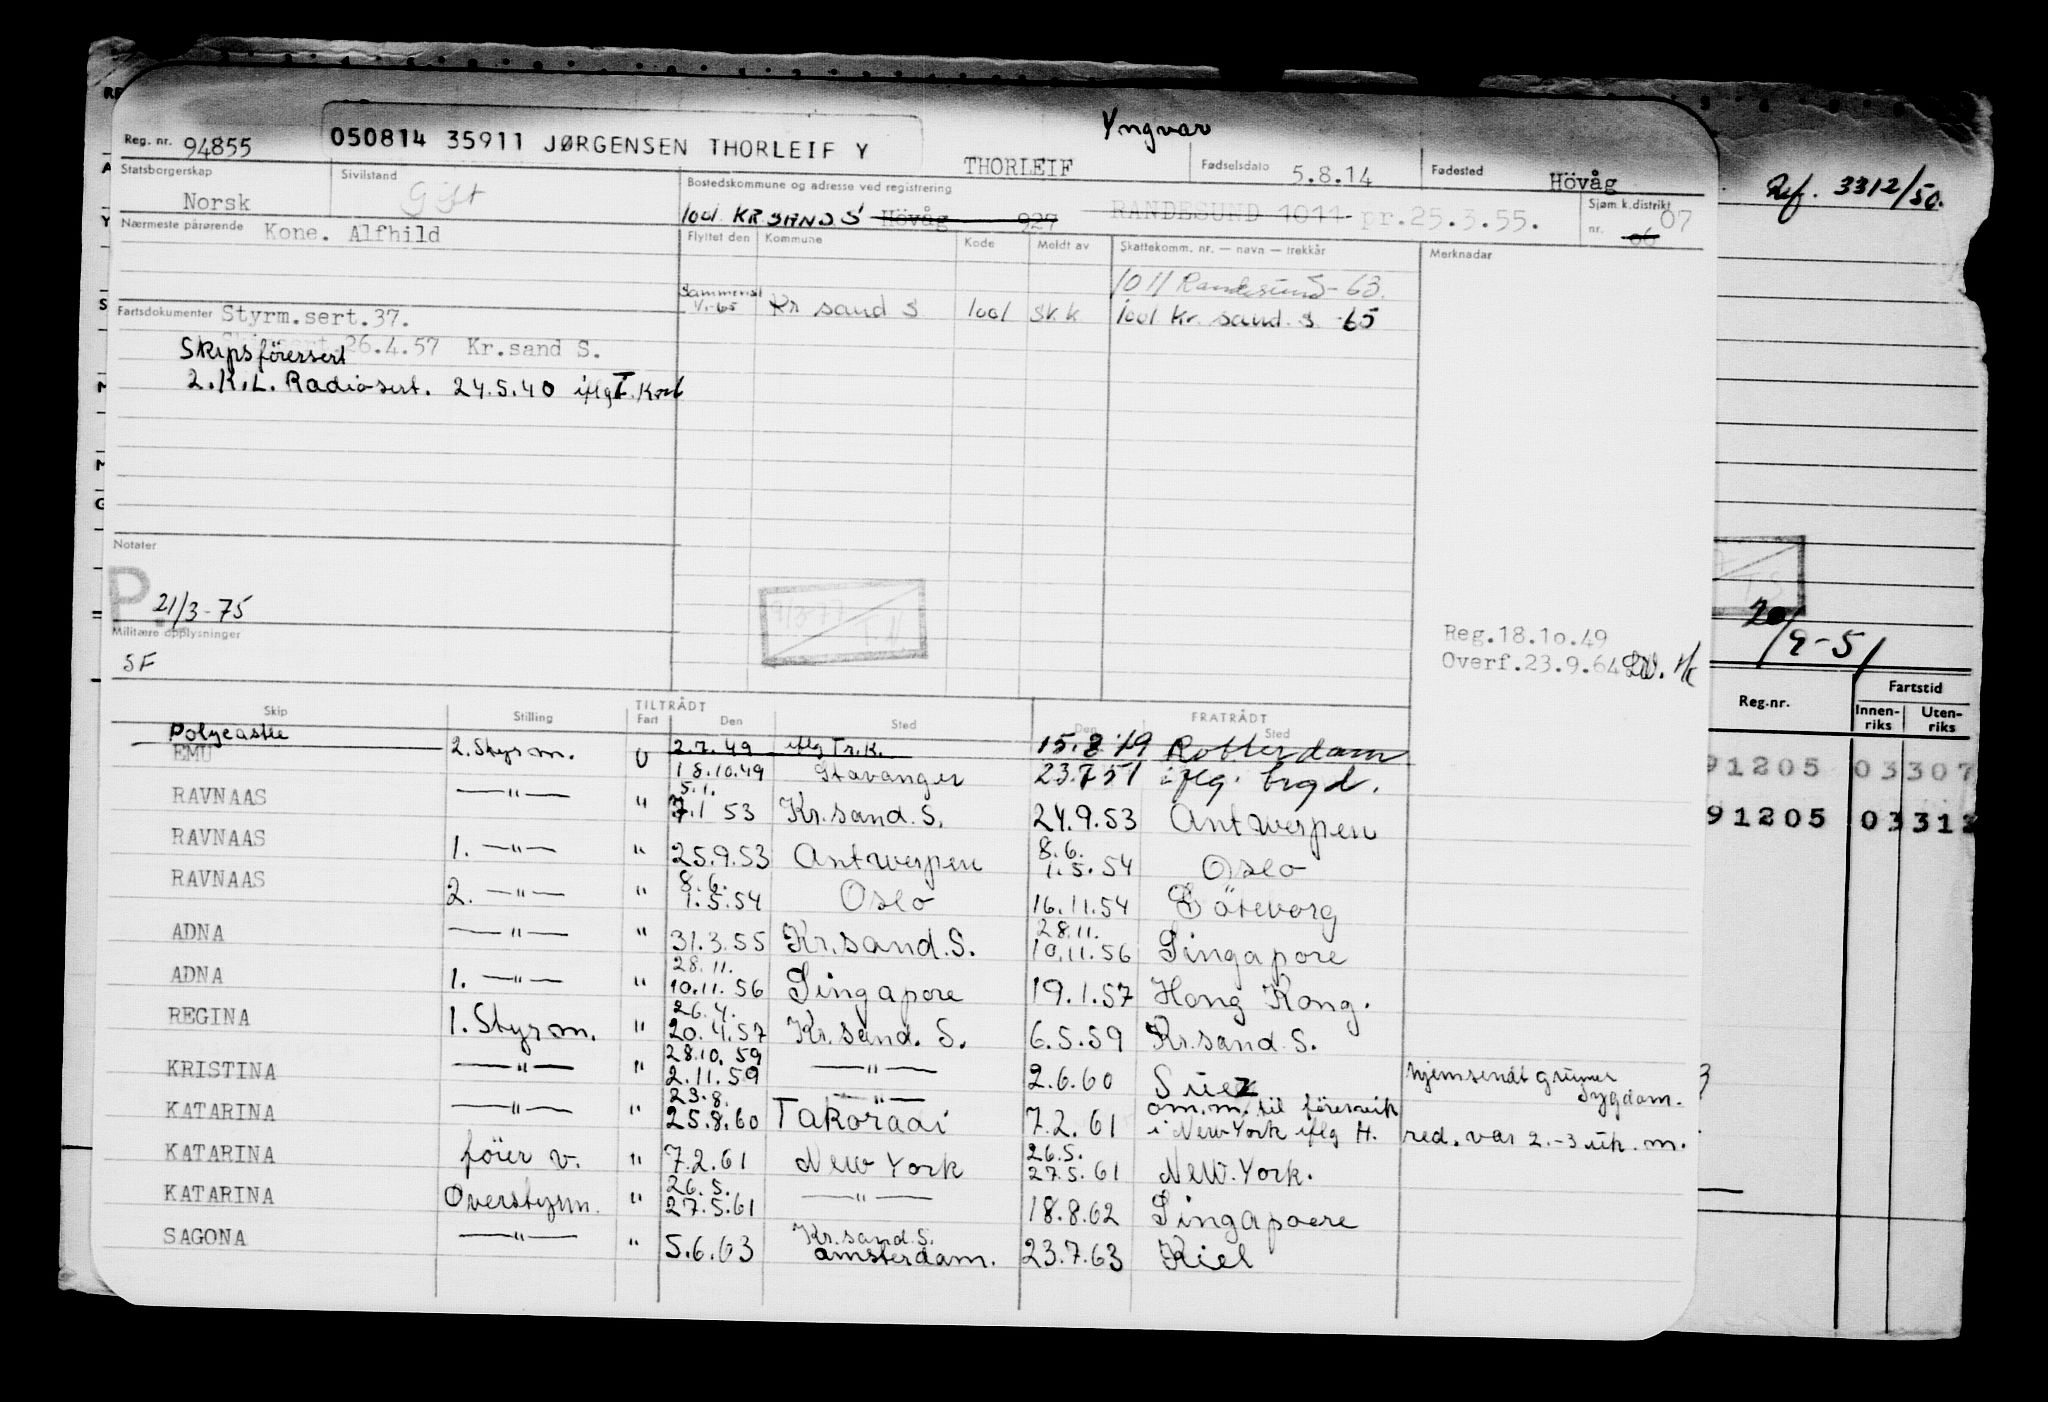 Yngvar
Reg. nr. 94855 050814 35911 JØRGENSEN THORLEIF Y THORLEIF Fødselsdato 5.8.14 Fødested Hövåg
Ref. 3312/50.
Statsborgerskap Norsk Sivilstand Gift Bostedskommune og adresse ved registrering
1001 KR SAND S Hövåg 927 RANDESUND 1011 pr.25.3.55. Sjøm.k.distrikt nr. 06 07
Nærmeste pårørende Kone. Alfhild
Flyttet den Kommune Kode Meldt av Skattekomm. nr. — navn — trekkår Merknader
1011 Randesund -63.
Sammensl 1/1-65 Kr sand S 1001 Sk.k 1001 Kr. sand. S. -65
Fartsdokumenter Styrm.sert.37.
Skipsförersert 26.4.57 Kr.sand S.
2.K.L. Radiosert. 24.5.40 iflg T. Kort
Notater
P 21/3-75
Militære opplysninger
SF
Reg.18.10.49
Overf.23.9.64
20/9-51
Reg.nr. Fartstid
Innenriks Utenriks
91205 03307
91205 03312
TILTRÅDT FRATRÅDT
Skip Stilling Fart Den Sted Den Sted
Polycastle 2.7.49 iflg Tr.K. 15.8.49 Rotterdam
EMU 2. Styrm. U 18.10.49 Stavanger 23.7.51 iflg. brgd.
RAVNAAS —"— " 5.1. 7.1 53 Kr.sand.S. 24.9.53 Antwerpen
RAVNAAS 1. —"— " 25.9.53 Antwerpen 8.6. 1.5.54 Oslo
RAVNAAS 2. —"— " 8.6. 1.5.54 Oslo 16.11.54 Göteborg
ADNA —"— " 31.3.55 Kr.sand.S. 28.11. 10.11.56 Singapore
ADNA 1. —"— " 28.11. 10.11.56 Singapore 19.1.57 Hong Kong.
REGINA 1. Styrm. " 26.4. 20.4.57 Kr.sand. S. 6.5.59 Kr.sand. S.
KRISTINA —"— " 28.10.59 2.11.59 —"— 2.6.60 Suez hjemsendt grunnet sygdom.
KATARINA —"— " 23.8. 25.8.60 —"— Takoradi 7.2.61 om.m. til förervik i New York iflg H. red. var 2.-3 uk. m.
KATARINA förer v. " 7.2.61 New York 26.5. 27.5.61 New.York.
KATARINA Overstyrm. " 26.5. 27.5.61 —"— 18.8.62 Singapore
SAGONA —"— " 5.6.63 Kr.sand.S. Amsterdam. 23.7.63 Kiel